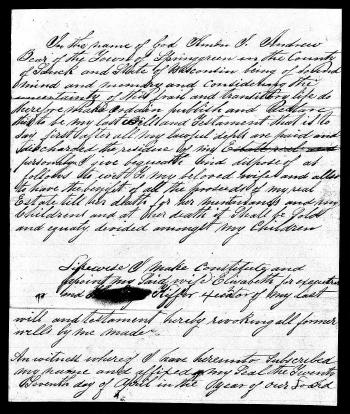 In the name of God Amen I. Andrew
Bear of the Town of Springgreen in the County
of Sauk and State of Wisconsin being of sound
mind and memory and considering the
uncertainty of this frail and transitory life do
therefore make ordain publish and declare
this to be my last will and Testament that is to
say first after all my lawful depts are paid and
discharged the residue of my Estate real and
personal I give bequeath and dispose of as
follows to wit. To my beloved wife and allso
to have the benefit of all the proseeds of my real
Estate till her death for her maintenance and my
Children and at her death it Shall be Sold
and equaly divided amongst my Children
Likewise I make Constitute and
appoint my Said wife Elizabeth for executrix
and of my last
will and testament hereby revoking all former
wills by me made
In witness whereof I have hereunto Subscribed
my name and affixed my Seal the Twenty
Seventh day of April in the year of our Lord